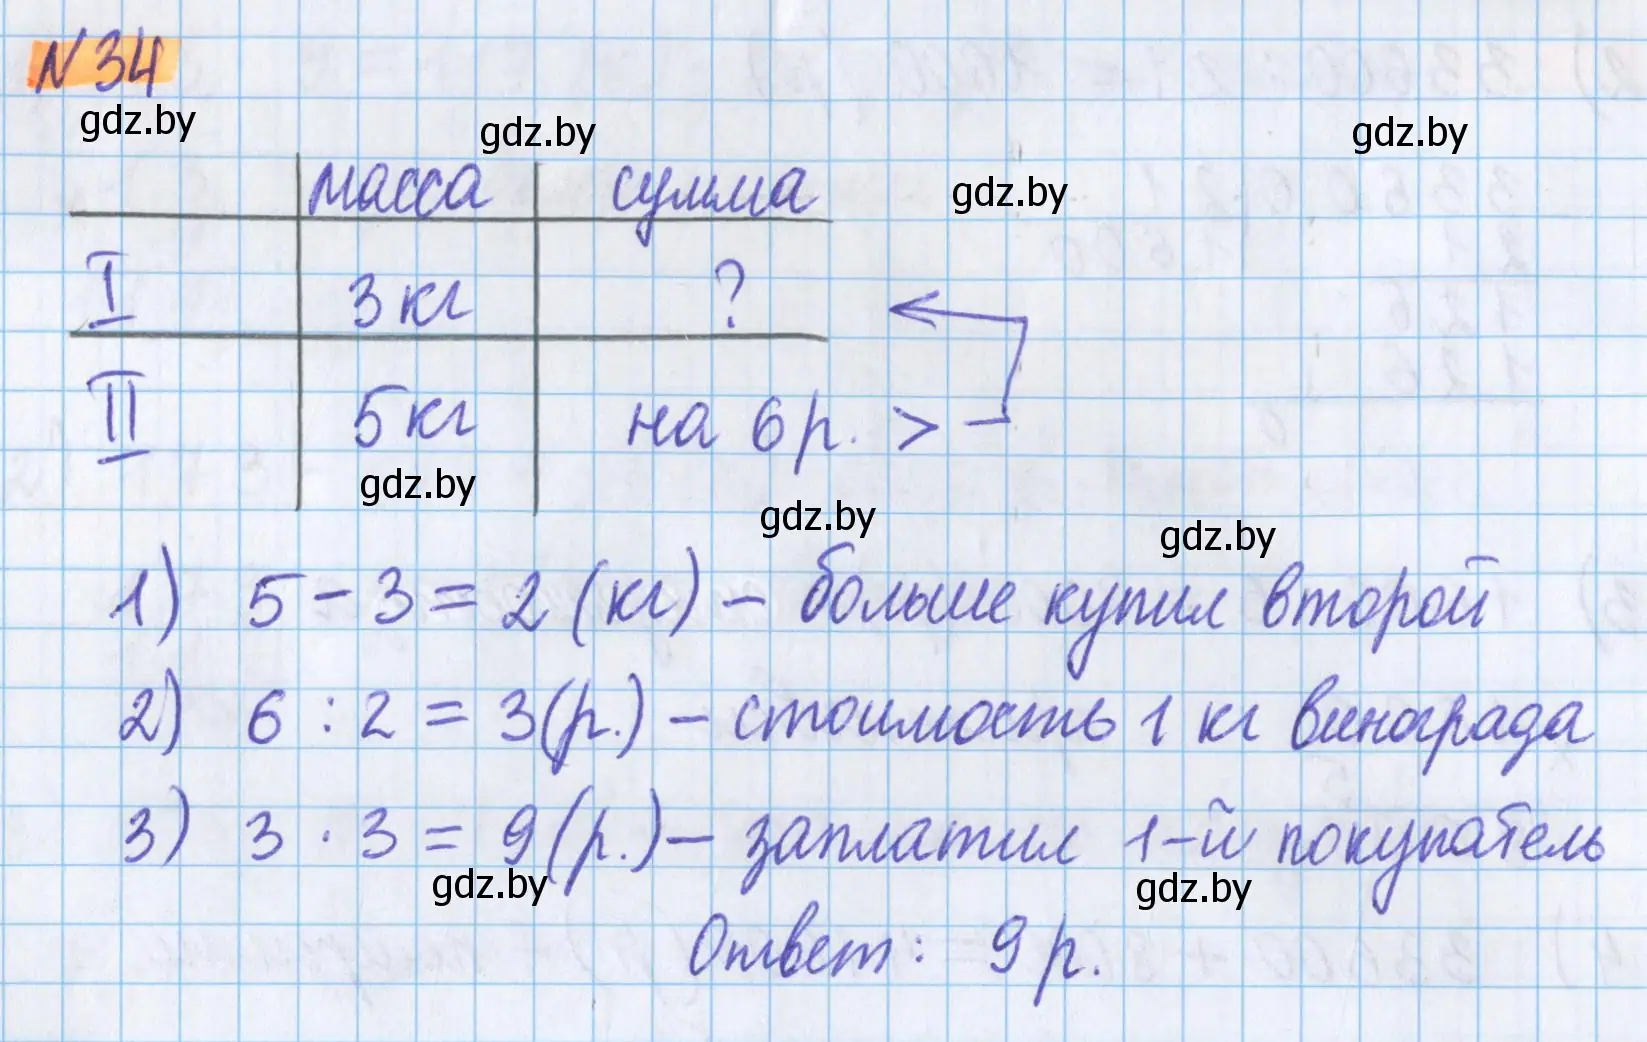 N 34
gdz.by
gdz.by
gdz.by
gdz.by
масса сумма
I 3 кг ?
II 5 кг на 6 р. >
gdz.by
gdz.by
gdz.by
1) 5 - 3 = 2 (кг) - больше купил второй
2) 6 : 2 = 3 (р.) - стоимость 1 кг винограда
3) 3 · 3 = 9 (р.) - заплатил 1-й покупатель
gdz.by
gdz.by
Ответ: 9 р.